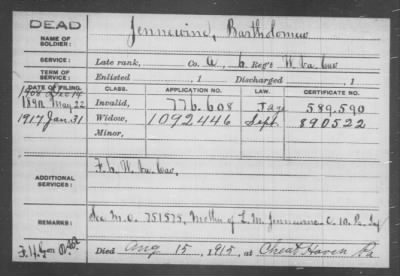 DEAD
NAME OF SOLDIER: Jennewine, Bartholomew
SERVICE: Late rank, Co. A, 6 Reg't W. Va. Cav
TERM OF SERVICE: Enlisted , 1 Discharged , 1
DATE OF FILING. CLASS. APPLICATION NO. LAW. CERTIFICATE NO.
1908 Dec 14
1892 May 22 Invalid, 776.608 589.590
1917 Jan 31 Widow, 1092446 Sept. 890522
Minor,
ADDITIONAL SERVICES: F. 6 W. Va. Cav.
REMARKS: See M.C. 751575, Mother of L. M. Jennewine C. 10, Pa. Inf
Died Aug 15, 1915, at Cheat Haven Pa